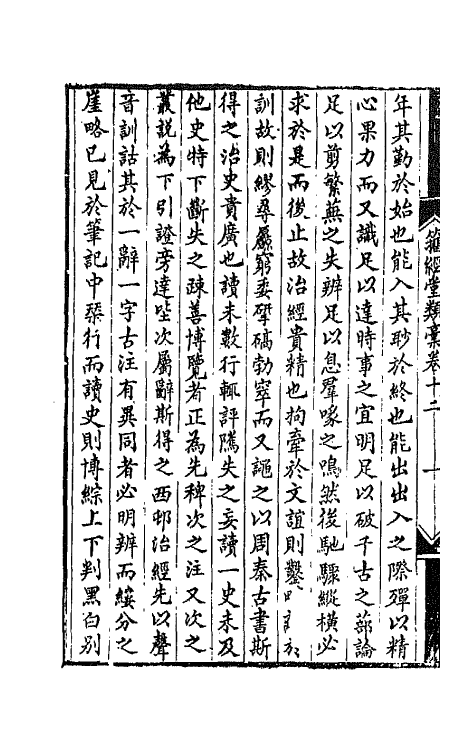 籀經堂類稾卷十二
一
年其勤於始也能入其眇於終也能出出入之際殫以精
心果力而又識足以達時事之宜明足以破千古之蔀論
足以剪繁蕪之失辨足以息羣喙之鳴然後馳驟縱橫必
求於是而後止故治經貴精也拘牽於文誼則鑿
訓故則繆尋厲窮委犖碻勃窣而又謳之以周秦古書斯
得之治史貴廣也讀未數行輒評隲失之妄讀一史未及
他史特下斷失之疎善博覽者正為先稗次之注又次之
叢説為下引證旁達坒次屬辭斯得之西邨治經先以聲
音訓詁其於一辭一字古注有異同者必明辨而綏分之
崖略已見於筆記中琹行而讀史則博綜上下判黑白别